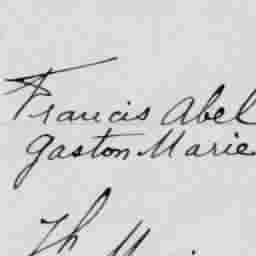 Francis Abel
Gaston Marie
Th